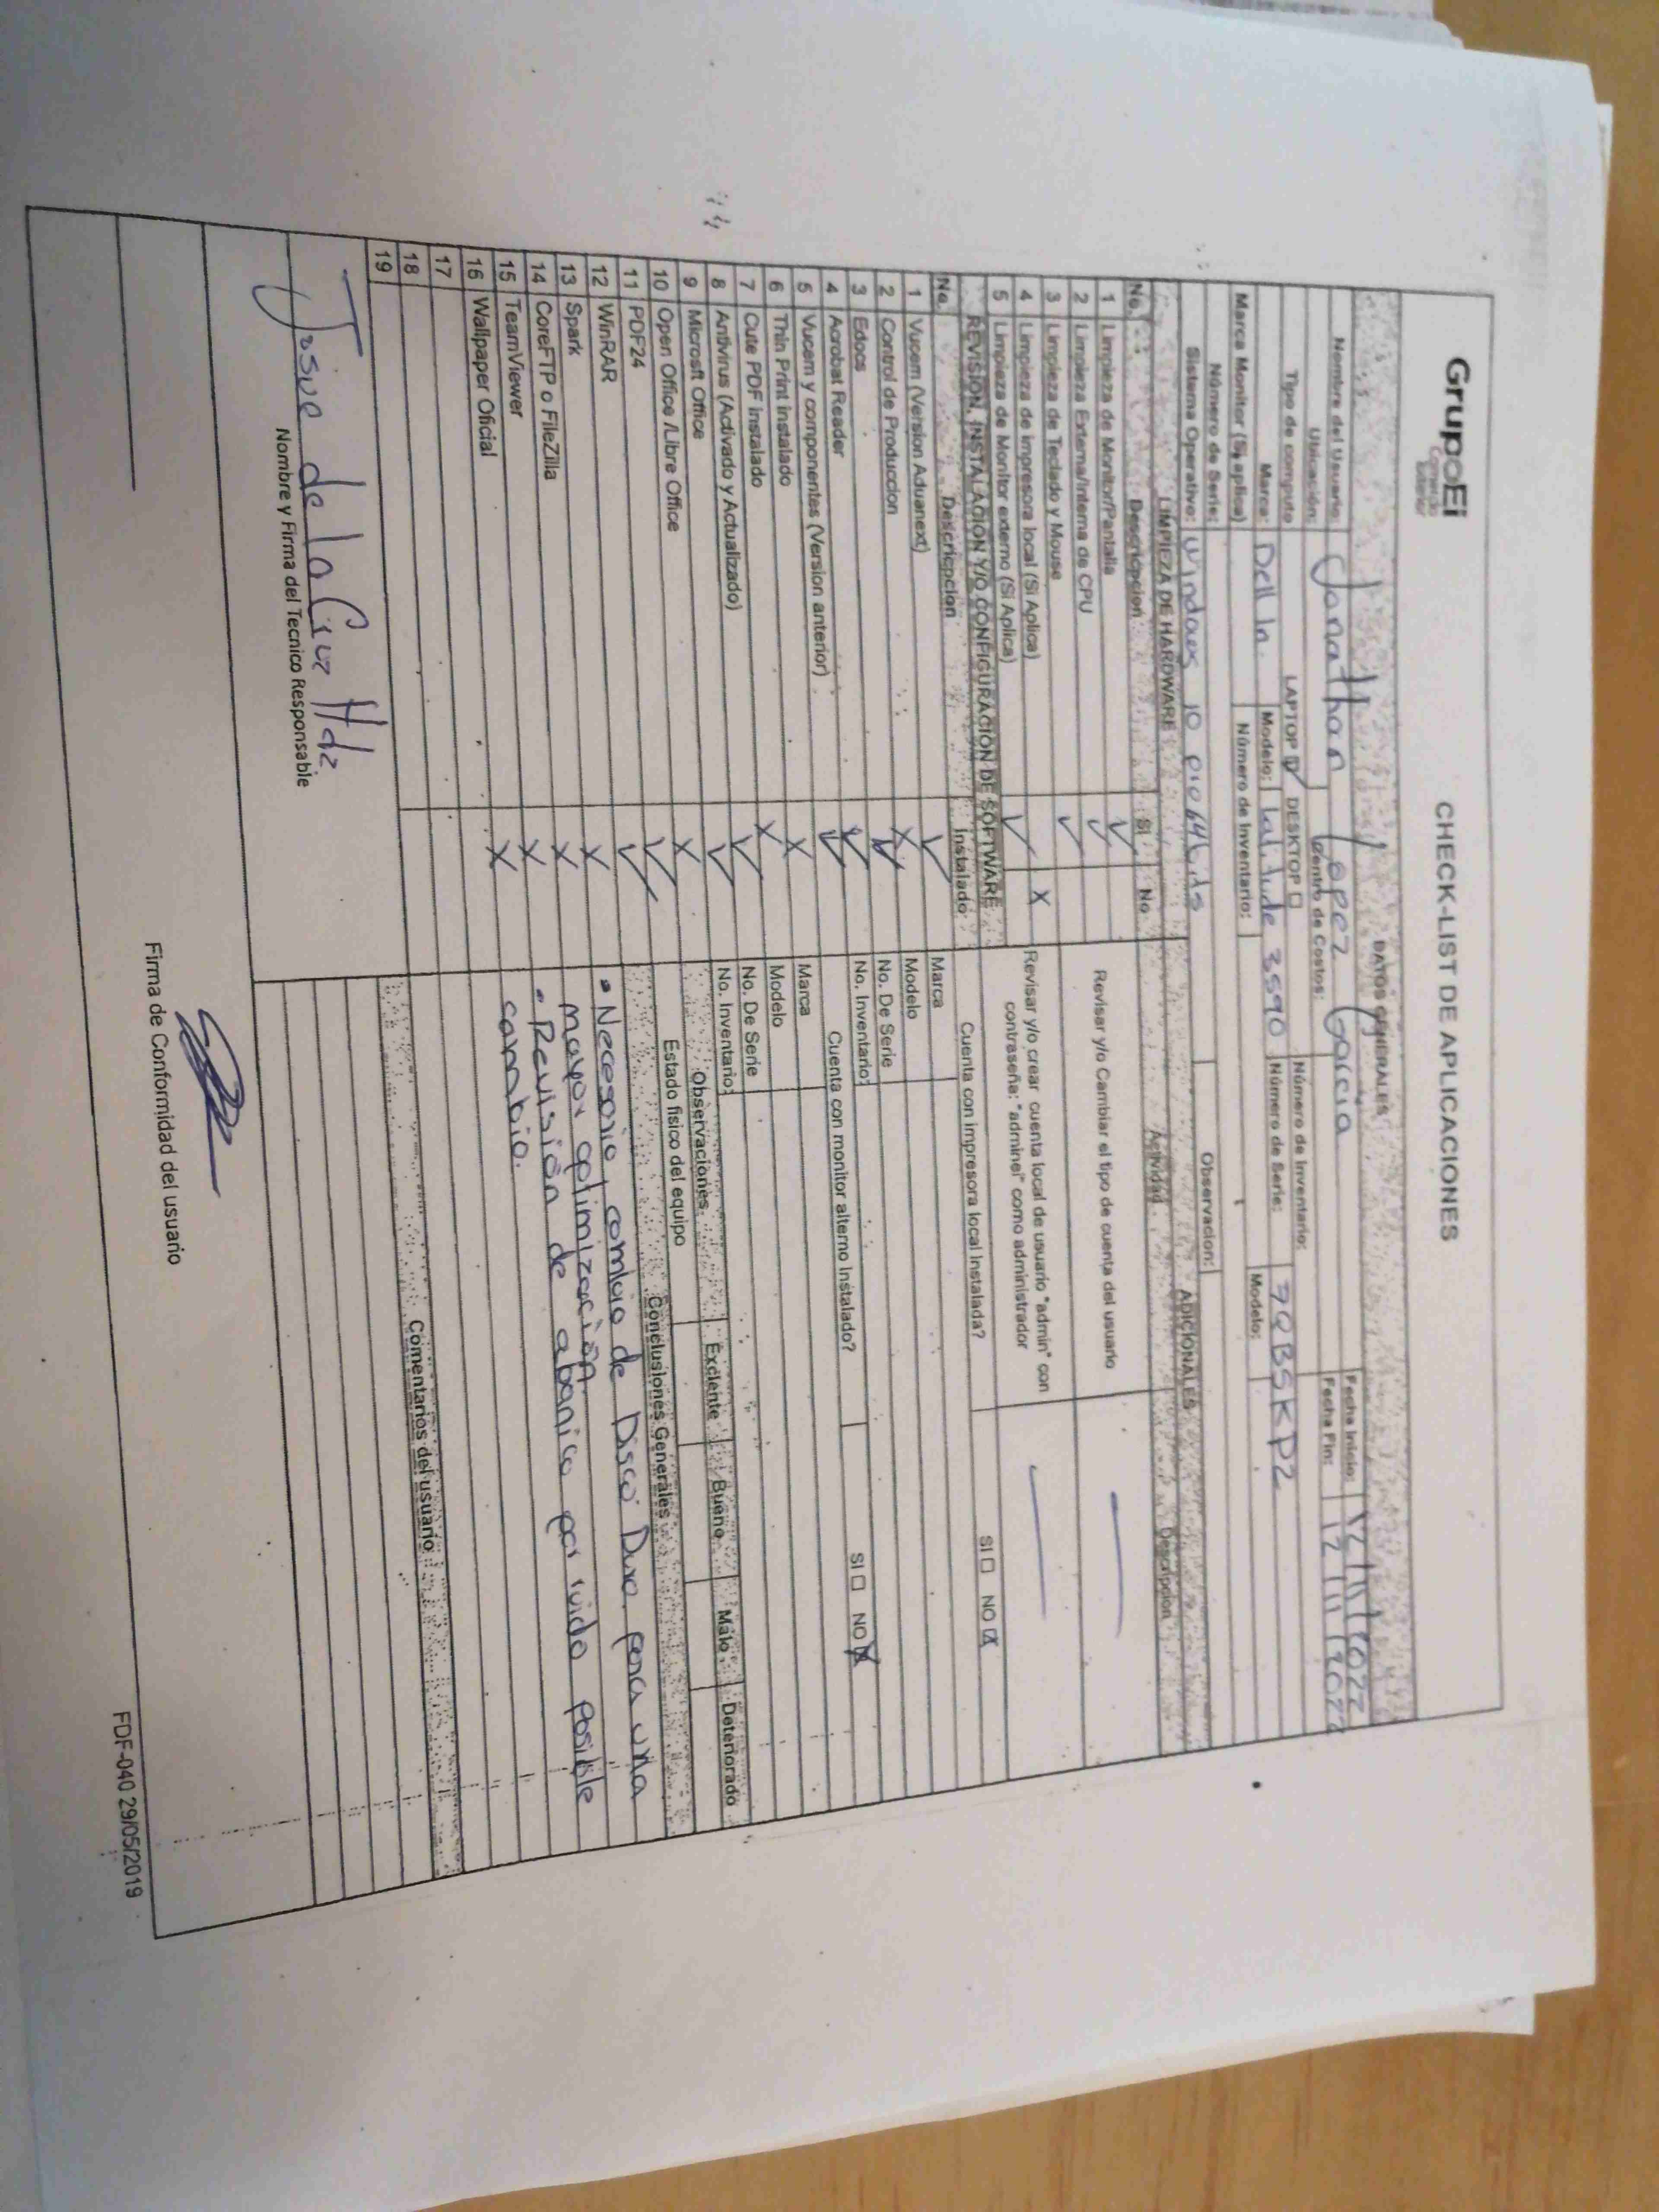 GrupoEi
Comercio
Exterior
CHECK-LIST DE APLICACIONES
DATOS GENERALES
Nombre del Usuario: Jonathan Lopez Garcia Fecha Inicio: 12/11/2022
Ubicación: Centro de Costos: Fecha Fin: 12/11/2022
Tipo de computo LAPTOP ☑ DESKTOP □ Número de Inventario:
Marca: Dell In. Modelo: Latitude 3590 Número de Serie: 7QB5KP2
Marca Monitor (Si aplica) Número de Inventario: Modelo:
Número de Serie:
Sistema Operativo: Windows 10 pro 64bits Observacion:
LIMPIEZA DE HARDWARE
No. Descricpcion Si No
1 Limpieza de Monitor/Pantalla ✓
2 Limpieza Externa/Interna de CPU ✓
3 Limpieza de Teclado y Mouse ✓
4 Limpieza de impresora local (Si Aplica) X
5 Limpieza de Monitor externo (Si Aplica) ✓
ADICIONALES
Actividad Descripcion
Revisar y/o Cambiar el tipo de cuenta del usuario
Revisar y/o crear cuenta local de usuario "admin" con
contraseña: "adminei" como administrador
REVISION, INSTALACION Y/O CONFIGURACION DE SOFTWARE
No. Descricpcion Instalado
1 Vucem (Version Aduanext) ✓
2 Control de Produccion
3 Edocs
4 Acrobat Reader ✓
5 Vucem y componentes (Version anterior) X
6 Thin Print instalado X
7 Cute PDF instalado ✓
8 Antivirus (Activado y Actualizado) ✓
9 Microsft Office X
10 Open Office /Libre Office ✓
11 PDF24 ✓
12 WinRAR X
13 Spark X
14 CoreFTP o FileZilla X
15 TeamViewer X
16 Wallpaper Oficial
17
18
19
Cuenta con impresora local Instalada? SI □ NO ☒
Marca
Modelo
No. De Serie
No. Inventario:
Cuenta con monitor alterno Instalado? SI □ NO ☒
Marca
Modelo
No. De Serie
No. Inventario:
Observaciones Exclente Bueno Malo Deteriorado
Estado fisico del equipo
Conclusiones Generales
• Necesario cambio de Disco Duro, para una
mayor optimización.
- Revisión de abanico por ruido posible
cambio.
Comentarios del usuario
Josue de la Cruz Hdz
Nombre y Firma del Tecnico Responsable
Firma de Conformidad del usuario
FDF-040 29/05/2019